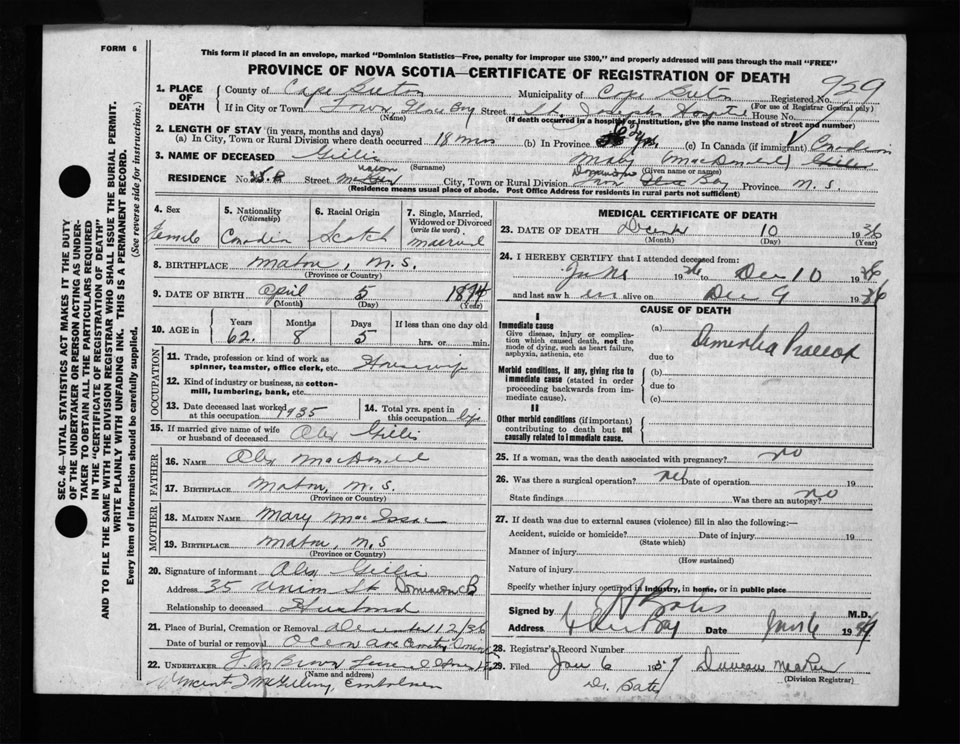 FORM 6
This form if placed in an envelope, marked "Dominion Statistics—Free, penalty for improper use $300," and properly addressed will pass through the mail "FREE"
PROVINCE OF NOVA SCOTIA—CERTIFICATE OF REGISTRATION OF DEATH
959
1. PLACE OF DEATH
County of Cape Breton Municipality of Cape Breton Registered No.
(For use of Registrar General only)
If in City or Town Town Glace Bay Street St. Joseph's House No.
(Name) (If death occurred in a hospital or institution, give the name instead of street and number)
2. LENGTH OF STAY (in years, months and days)
(a) In City, Town or Rural Division where death occurred 18 mos (b) In Province 62 yrs. (c) In Canada (if immigrant) Canadian
3. NAME OF DECEASED Gillis Mary (MacDonald)
(Surname) (Given name or names)
RESIDENCE No. 35 Union Street City, Town or Rural Division Dominion Province N. S.
(Residence means usual place of abode. Post Office Address for residents in rural parts not sufficient)
4. Sex Female
5. Nationality (Citizenship) Canadian
6. Racial Origin Scotch
7. Single, Married, Widowed or Divorced (write the word) married
8. BIRTHPLACE Mabou, N.S.
(Province or Country)
9. DATE OF BIRTH April 5 1874
(Month) (Day) (Year)
10. AGE in Years 62 Months 8 Days 5 If less than one day old hrs. or min.
OCCUPATION
11. Trade, profession or kind of work as spinner, teamster, office clerk, etc. Housewife
12. Kind of industry or business, as cotton-mill, lumbering, bank, etc.
13. Date deceased last worked at this occupation 1935
14. Total yrs. spent in this occupation life
15. If married give name of wife or husband of deceased Alex Gillis
FATHER
16. NAME Alex MacDonald
17. BIRTHPLACE Mabou, N.S.
(Province or Country)
MOTHER
18. MAIDEN NAME Mary MacIsaac
19. BIRTHPLACE Mabou, N.S
(Province or Country)
20. Signature of informant Alex Gillis
Address 35 Union St Dominion CB
Relationship to deceased Husband
21. Place of Burial, Cremation or Removal December 12/36
Date of burial or removal
22. UNDERTAKER
(Name and address)
Vincent J McGillivray, Embalmer
MEDICAL CERTIFICATE OF DEATH
23. DATE OF DEATH December 10 1936
(Month) (Day) (Year)
24. I HEREBY CERTIFY that I attended deceased from:
June 1936 to Dec 10 1936
and last saw h er alive on Dec 9 1936
CAUSE OF DEATH
I
Immediate cause
Give disease, injury or complication which caused death, not the mode of dying, such as heart failure, asphyxia, asthenia, etc
(a) Dementia Praecox
due to
Morbid conditions, if any, giving rise to immediate cause (stated in order proceeding backwards from immediate cause).
(b)
due to
(c)
II
Other morbid conditions (if important) contributing to death but not causally related to immediate cause.
25. If a woman, was the death associated with pregnancy? no
26. Was there a surgical operation? no Date of operation 19
State findings Was there an autopsy? no
27. If death was due to external causes (violence) fill in also the following:—
Accident, suicide or homicide? Date of injury 19
(State which)
Manner of injury
(How sustained)
Nature of injury
Specify whether injury occurred in industry, in home, or in public place
Signed by M.D.
Address Glace Bay Date Jan 6 19
28. Registrar's Record Number
29. Filed Jan 6 1937
(Division Registrar)
Dr. Bates
SEC. 46—VITAL STATISTICS ACT MAKES IT THE DUTY
OF THE UNDERTAKER OR PERSON ACTING AS UNDER-
TAKER TO OBTAIN ALL THE PARTICULARS REQUIRED
IN THE "CERTIFICATE OF REGISTRATION OF DEATH"
AND TO FILE THE SAME WITH THE DIVISION REGISTRAR WHO SHALL ISSUE THE BURIAL PERMIT.
WRITE PLAINLY WITH UNFADING INK. THIS IS A PERMANENT RECORD.
Every item of information should be carefully supplied. (See reverse side for instructions.)